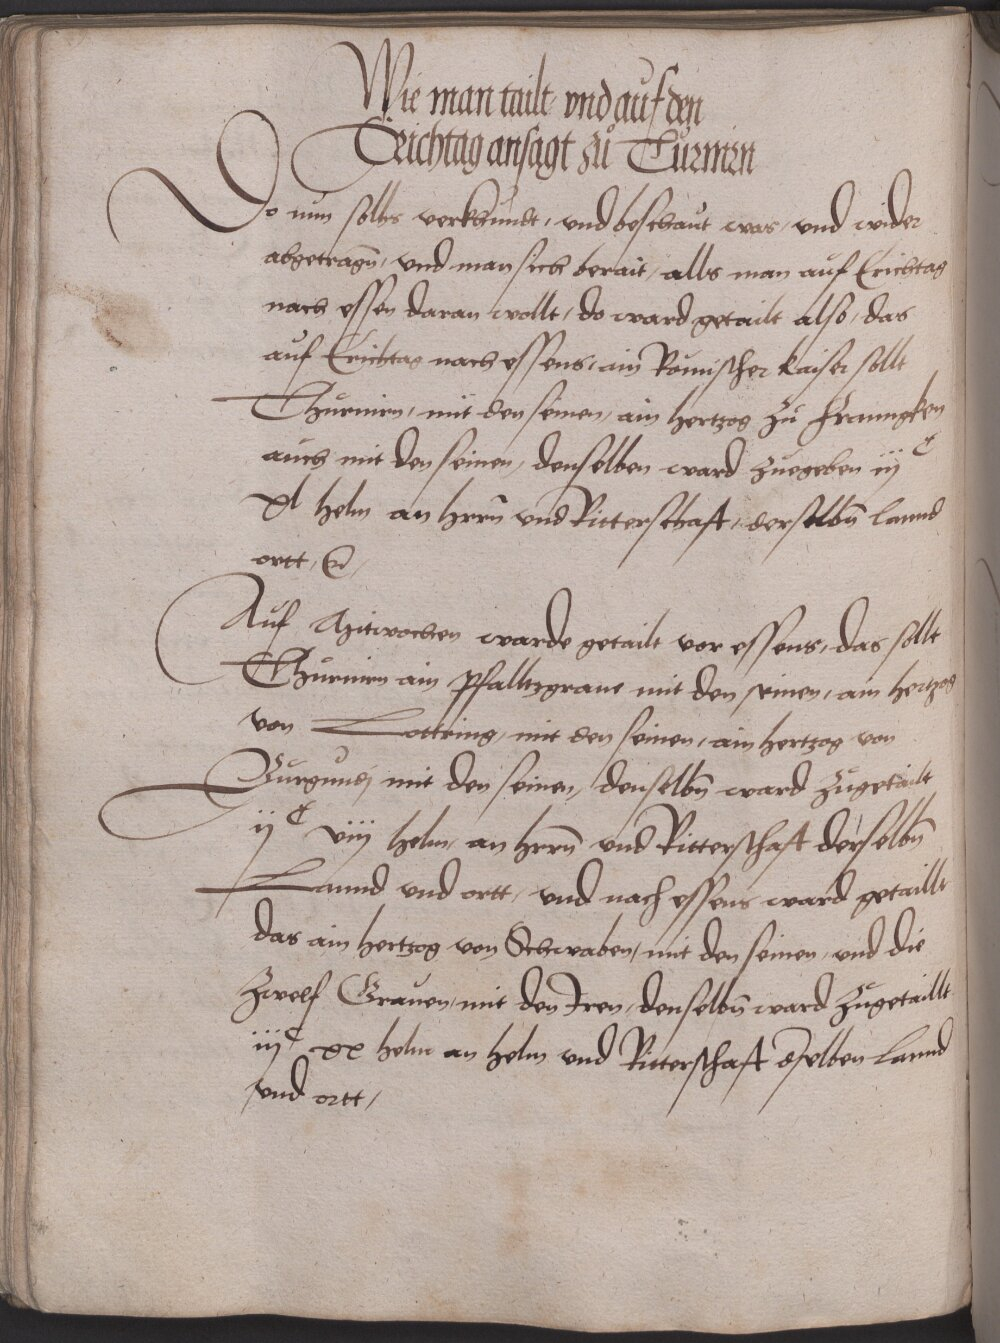 Wie man tailt vnd auf den
Erichtag ansagt zů Thurnirn
Do nun sollhs verkhundt, vnd beschaut was, vnd wider
abgetragn̄, vnd man sich berait, alls man auf Erichtag
nach essen daran wollt, do ward getailt also, das
auf Erichtag nach essens, ain Römischer kaiser sollt
Thurnirn, mit den seinen, ain hertzog zu Franngken
auch mit den seinen, denselben ward zuegeben iijᶜ
xl helm an hrrn̄ vnd Ritterschaft, derselbn̄ lannd
ortt, ꝛc,
Auf Mitwochen warde getailt vor essens, das sollt
Thurnirn ain Pfalltzgraue mit den seinen, ain hertzog
von Lottring, mit den seinen, ain hertzog von
Burgundj mit den seinen, denselbn̄ ward zugetailt
ijᶜ viij helm, an hrrn̄ vnd Ritterschaft derselbn̄
Lannd vnd ortt, vnd nach essens ward getaillt
das ain hertzog von Schwaben, mit den seinen, vnd die
zwelf Grauen, mit den Iren, denselbn̄ ward zugetaillt
iijᶜ xx helm an helm vnd Ritterschaft d̄selben lannd
vnd ortt,